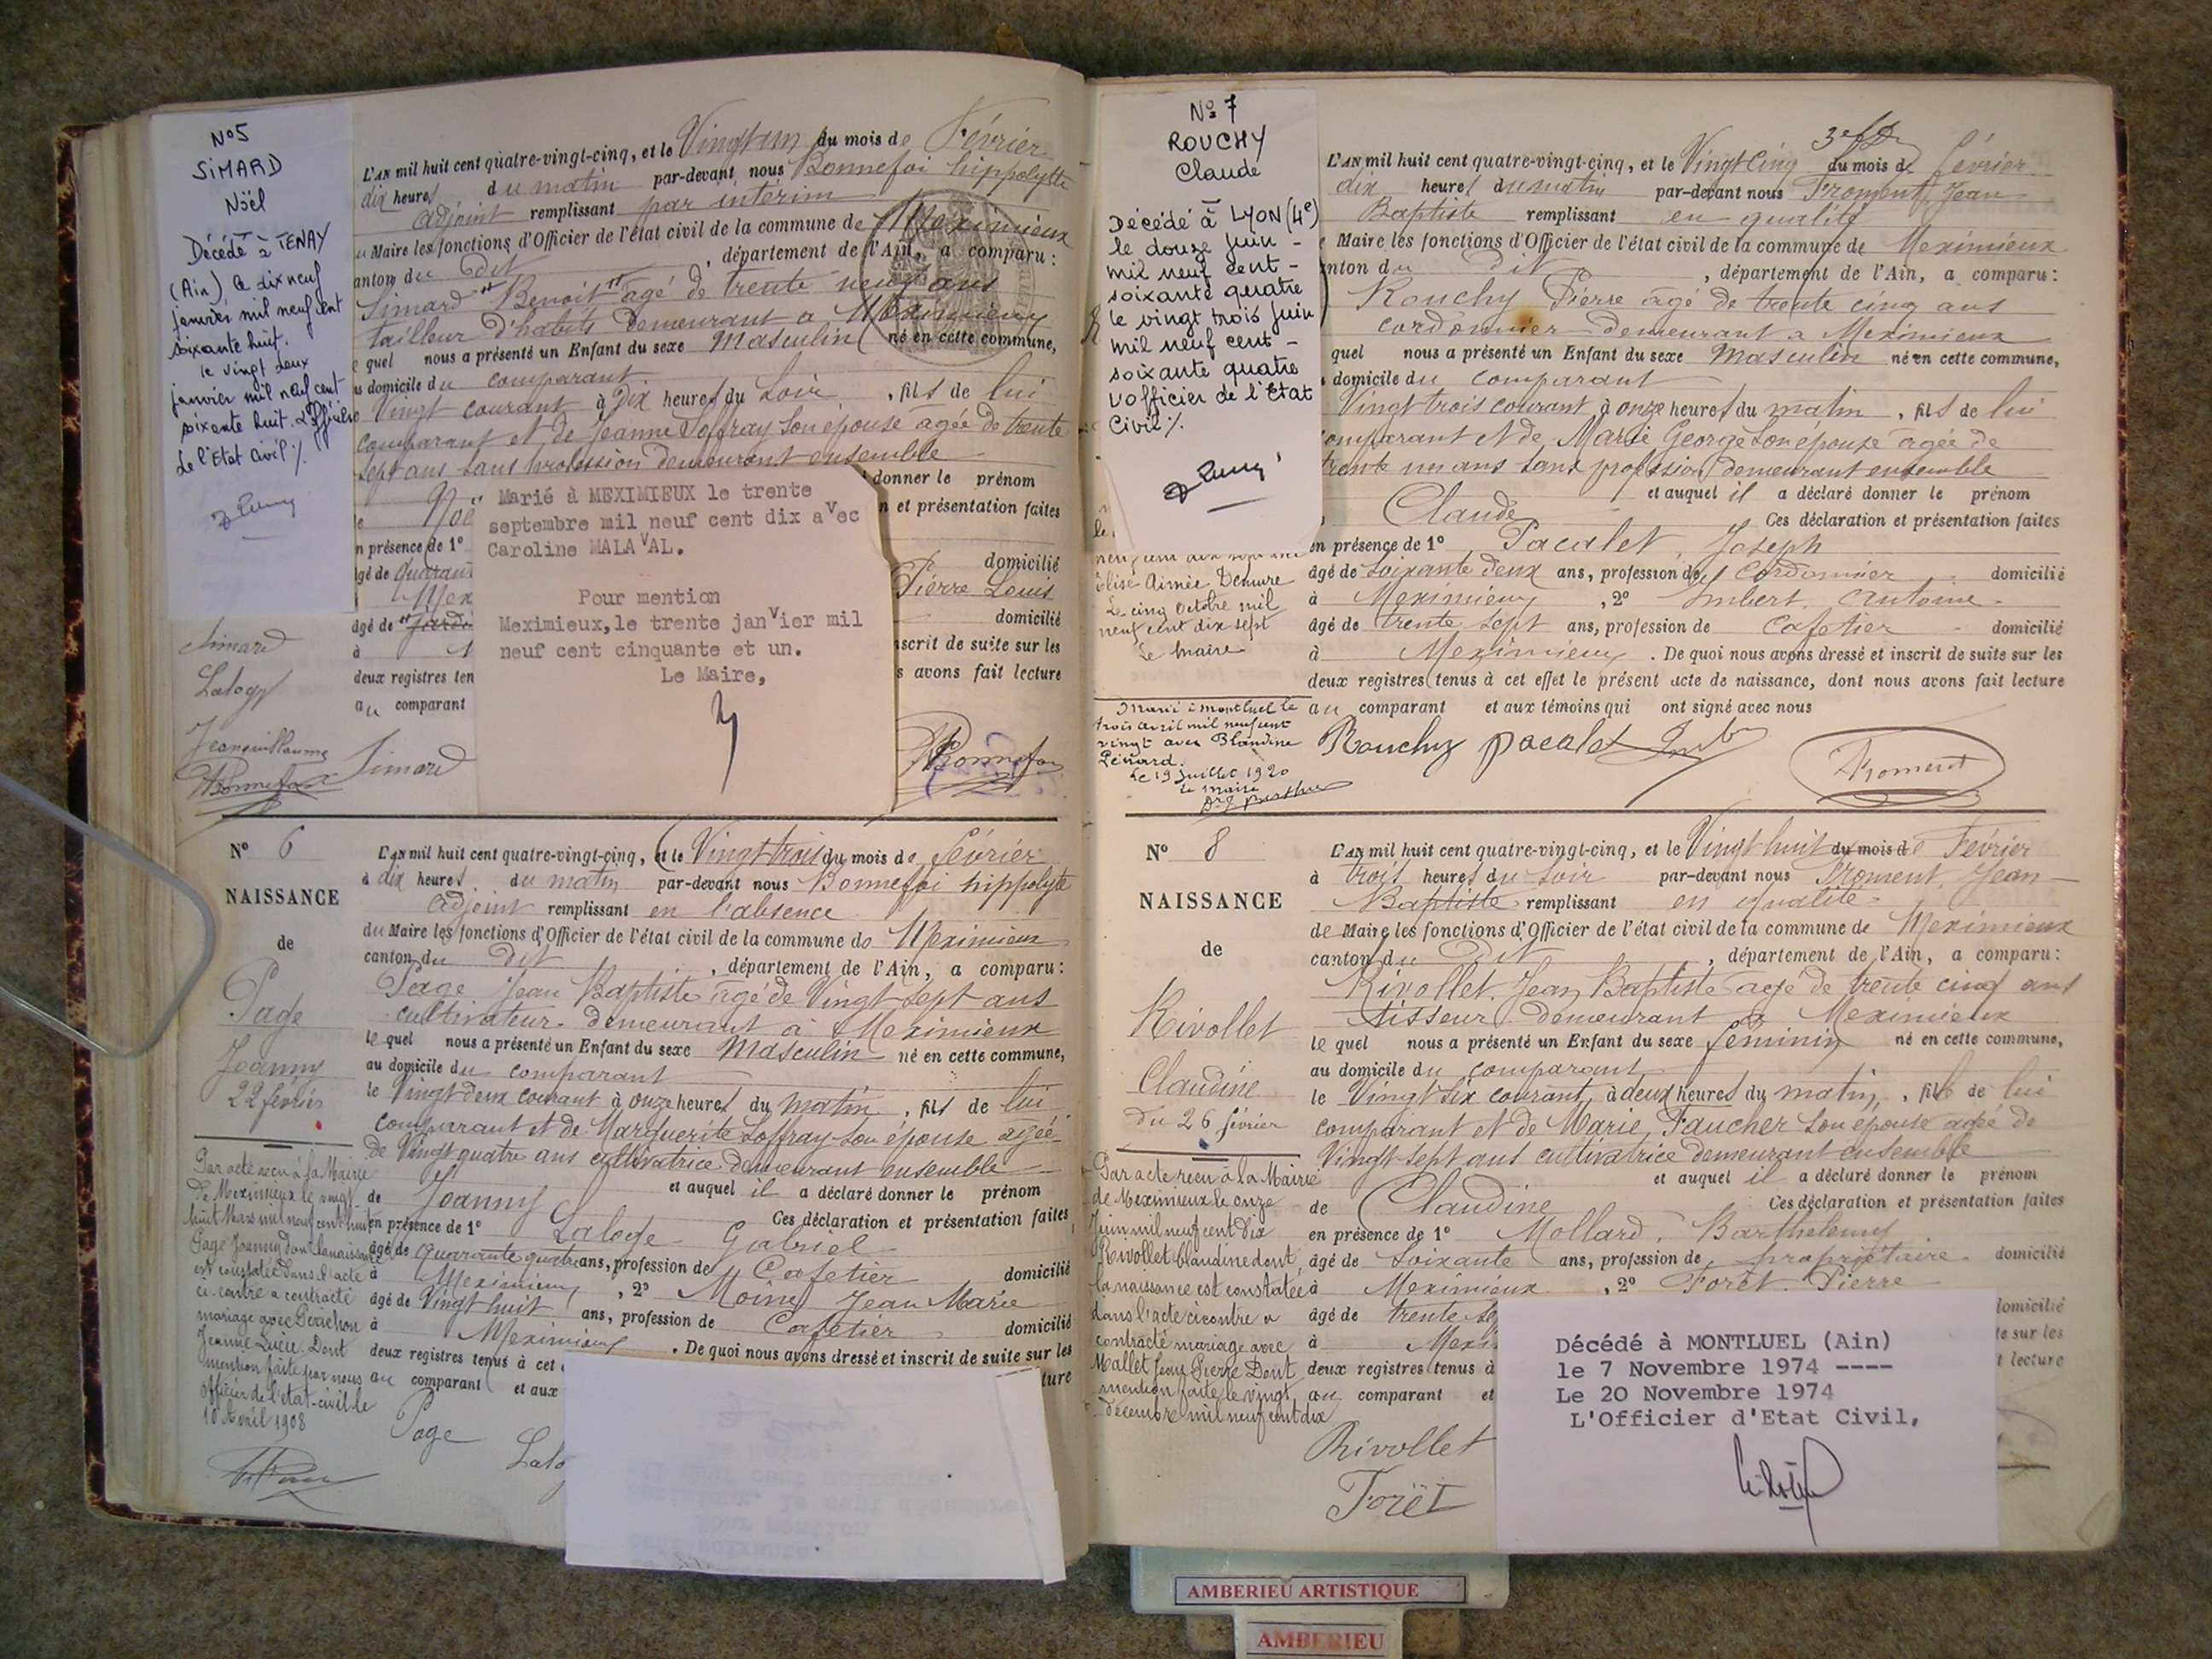 N°5
SIMARD
Noël
Décédé à TENAY
(Ain) le dix neuf
janvier mil neuf cent
soixante huit.
le vingt deux
janvier mil neuf cent
soixante huit. L'officier
de l'Etat Civil %.
Simard
Jeanguillaume
Bonnefoi
L'AN mil huit cent quatre-vingt-cinq, et le Vingt un du mois de Février
dix heures du matin par-devant nous Bonnefoi hippolytte
adjoint remplissant par intérim
du Maire les fonctions d'Officier de l'état civil de la commune de Meximieux
canton du Dit , département de l'Ain, a comparu :
Simard Benoit agé de trente neuf ans
tailleur d'habits demeurant a Meximieux
le quel nous a présenté un Enfant du sexe Masculin né en cette commune,
au domicile du comparant
Vingt courant à Dix heures du Soir , fils de lui
comparant et de Jeanne Soffray son épouse agée de trente
sept ans sans profession demeurant ensemble
donner le prénom
Noë
n et présentation faites
n présence de 1°
domicilié
âgé de
Pierre Louis
Mex
domicilié
âgé de
nscrit de suite sur les
à
s avons fait lecture
deux registres ten
au comparant
Simard
Bonnefoi
Marié à MEXIMIEUX le trente
septembre mil neuf cent dix avec
Caroline MALAVAL.
Pour mention
Meximieux, le trente janvier mil
neuf cent cinquante et un.
Le Maire,
N° 6
NAISSANCE
de
Page
Joanny
22 février
Par acte reçu à la Mairie
de Meximieux le vingt-
huit Mars mil neuf cent huit
Page Joanny dont la naissance
est constatée dans l'acte
ci-contre a contracté
mariage avec
Jeanne Lucie. Dont
mention faite par nous
officier de l'état-civil le
10 Avril 1908
L'AN mil huit cent quatre-vingt-cinq, et le Vingt trois du mois de février
à dix heures du matin par-devant nous Bonnefoi hippolyte
adjoint remplissant en l'absence
du Maire les fonctions d'Officier de l'état civil de la commune de Meximieux
canton du Dit , département de l'Ain, a comparu :
Page Jean Baptiste agé de Vingt sept ans
cultivateur demeurant à Meximieux
le quel nous a présenté un Enfant du sexe Masculin né en cette commune,
au domicile du comparant
le Vingt deux courant à onze heures du matin , fils de lui
comparant et de Marguerite Soffray son épouse agée
de Vingt quatre ans cultivatrice demeurant ensemble
et auquel il a déclaré donner le prénom
de Joanny Ces déclaration et présentation faites
en présence de 1° Laloge Gabriel
âgé de quarante quatre ans, profession de Cafetier domicilié
à Meximieux , 2° Moine Jean Marie
âgé de Vingt huit ans, profession de Cafetier domicilié
à Meximieux . De quoi nous avons dressé et inscrit de suite sur les
deux registres tenus à cet
ture
au comparant et aux
Page
Lalo
N° 7
ROUCHY
Claude
Décédé à LYON (4e)
le douze juin -
mil neuf cent -
soixante quatre
le vingt trois juin
mil neuf cent -
soixante quatre
l'officier de l'Etat
Civil %.
Elise Aimée Demure
Le cinq Octobre mil
neuf cent dix sept
Le Maire
Marié à Montluel le
trois avril mil neuf cent
vingt avec Blandine
Pénard.
Le 19 Juillet 1920
Le Maire
L'AN mil huit cent quatre-vingt-cinq, et le Vingt Cinq du mois de février
dix heures du matin par-devant nous Froment, Jean
Baptiste remplissant en qualité
Maire les fonctions d'Officier de l'état civil de la commune de Meximieux
canton du Dit , département de l'Ain, a comparu :
Rouchy Pierre agé de trente cinq ans
cordonnier demeurant a Meximieux
quel nous a présenté un Enfant du sexe Masculin né en cette commune,
domicile du comparant
Vingt trois courant à onze heures du matin , fils de lui
comparant et de Marie George son épouse agée de
trente un ans sans profession demeurant ensemble
et auquel il a déclaré donner le prénom
Claude Ces déclaration et présentation faites
en présence de 1° Pacalet, Joseph
âgé de soixante deux ans, profession de Cordonnier domicilié
à Meximieux , 2° Imbert, Antoine
âgé de trente sept ans, profession de Cafetier domicilié
à Meximieux . De quoi nous avons dressé et inscrit de suite sur les
deux registres tenus à cet effet le présent acte de naissance, dont nous avons fait lecture
au comparant et aux témoins qui ont signé avec nous
Rouchy pacalet
Froment
N° 8
NAISSANCE
de
Rivollet
Claudine
du 26 février
Par acte reçu à la Mairie
de Meximieux le onze
Juin mil neuf cent dix
Rivollet Claudine dont
la naissance est constatée
dans l'acte ci contre a
contracté mariage avec
Mallet Jean Pierre Dont
mention faite le vingt
décembre mil neuf cent dix
L'AN mil huit cent quatre-vingt-cinq, et le Vingt huit du mois de Février
à trois heures du soir par-devant nous Froment, Jean
Baptiste remplissant en qualité
de Maire les fonctions d'Officier de l'état civil de la commune de Meximieux
canton du Dit , département de l'Ain, a comparu :
Rivollet, Jean Baptiste agé de trente cinq ans
tisseur demeurant à Meximieux
le quel nous a présenté un Enfant du sexe féminin né en cette commune,
au domicile du comparant
le Vingt six courant, à deux heures du matin , fille de lui
comparant et de Marie Faucher son épouse agée de
Vingt sept ans cultivatrice demeurant ensemble
et auquel il a déclaré donner le prénom
de Claudine Ces déclaration et présentation faites
en présence de 1° Mollard, Barthelemy
âgé de Soixante ans, profession de propriétaire domicilié
à Meximieux , 2° Forêt Pierre
âgé de trente
domicilié
à Mexi
te sur les
deux registres tenus à
t lecture
au comparant et
Rivollet
Forêt
Décédé à MONTLUEL (Ain)
le 7 Novembre 1974 ----
Le 20 Novembre 1974
L'Officier d'Etat Civil,
AMBERIEU ARTISTIQUE
AMBERIEU